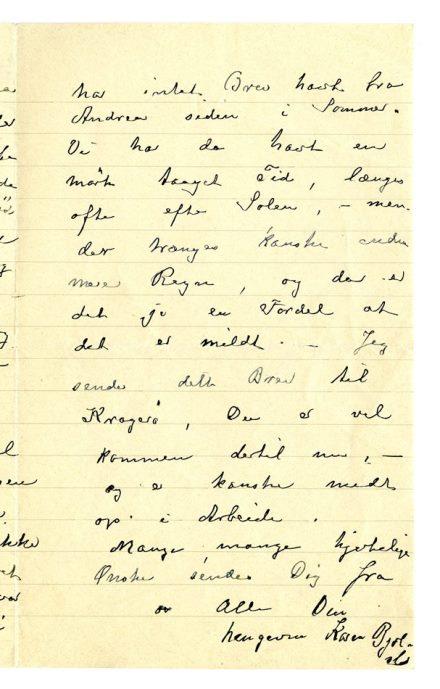 har intet Brev havt fra
Andrea siden i Sommer.
Vi har da havt en
mörk taaget Tid, længes
ofte efter Solen, – men
der trænges kanske endnu
mere Regn, og da er
det jo en Fordel at
det er mildt. – Jeg
sender dette Brev til
Kragerö, Du er vel
kommen dertil nu, –
og er kanske midt
op i Arbeide.
Mange, mange hjertelige
Ønsker sendes Dig fra
os Alle Din
hengivne Karen